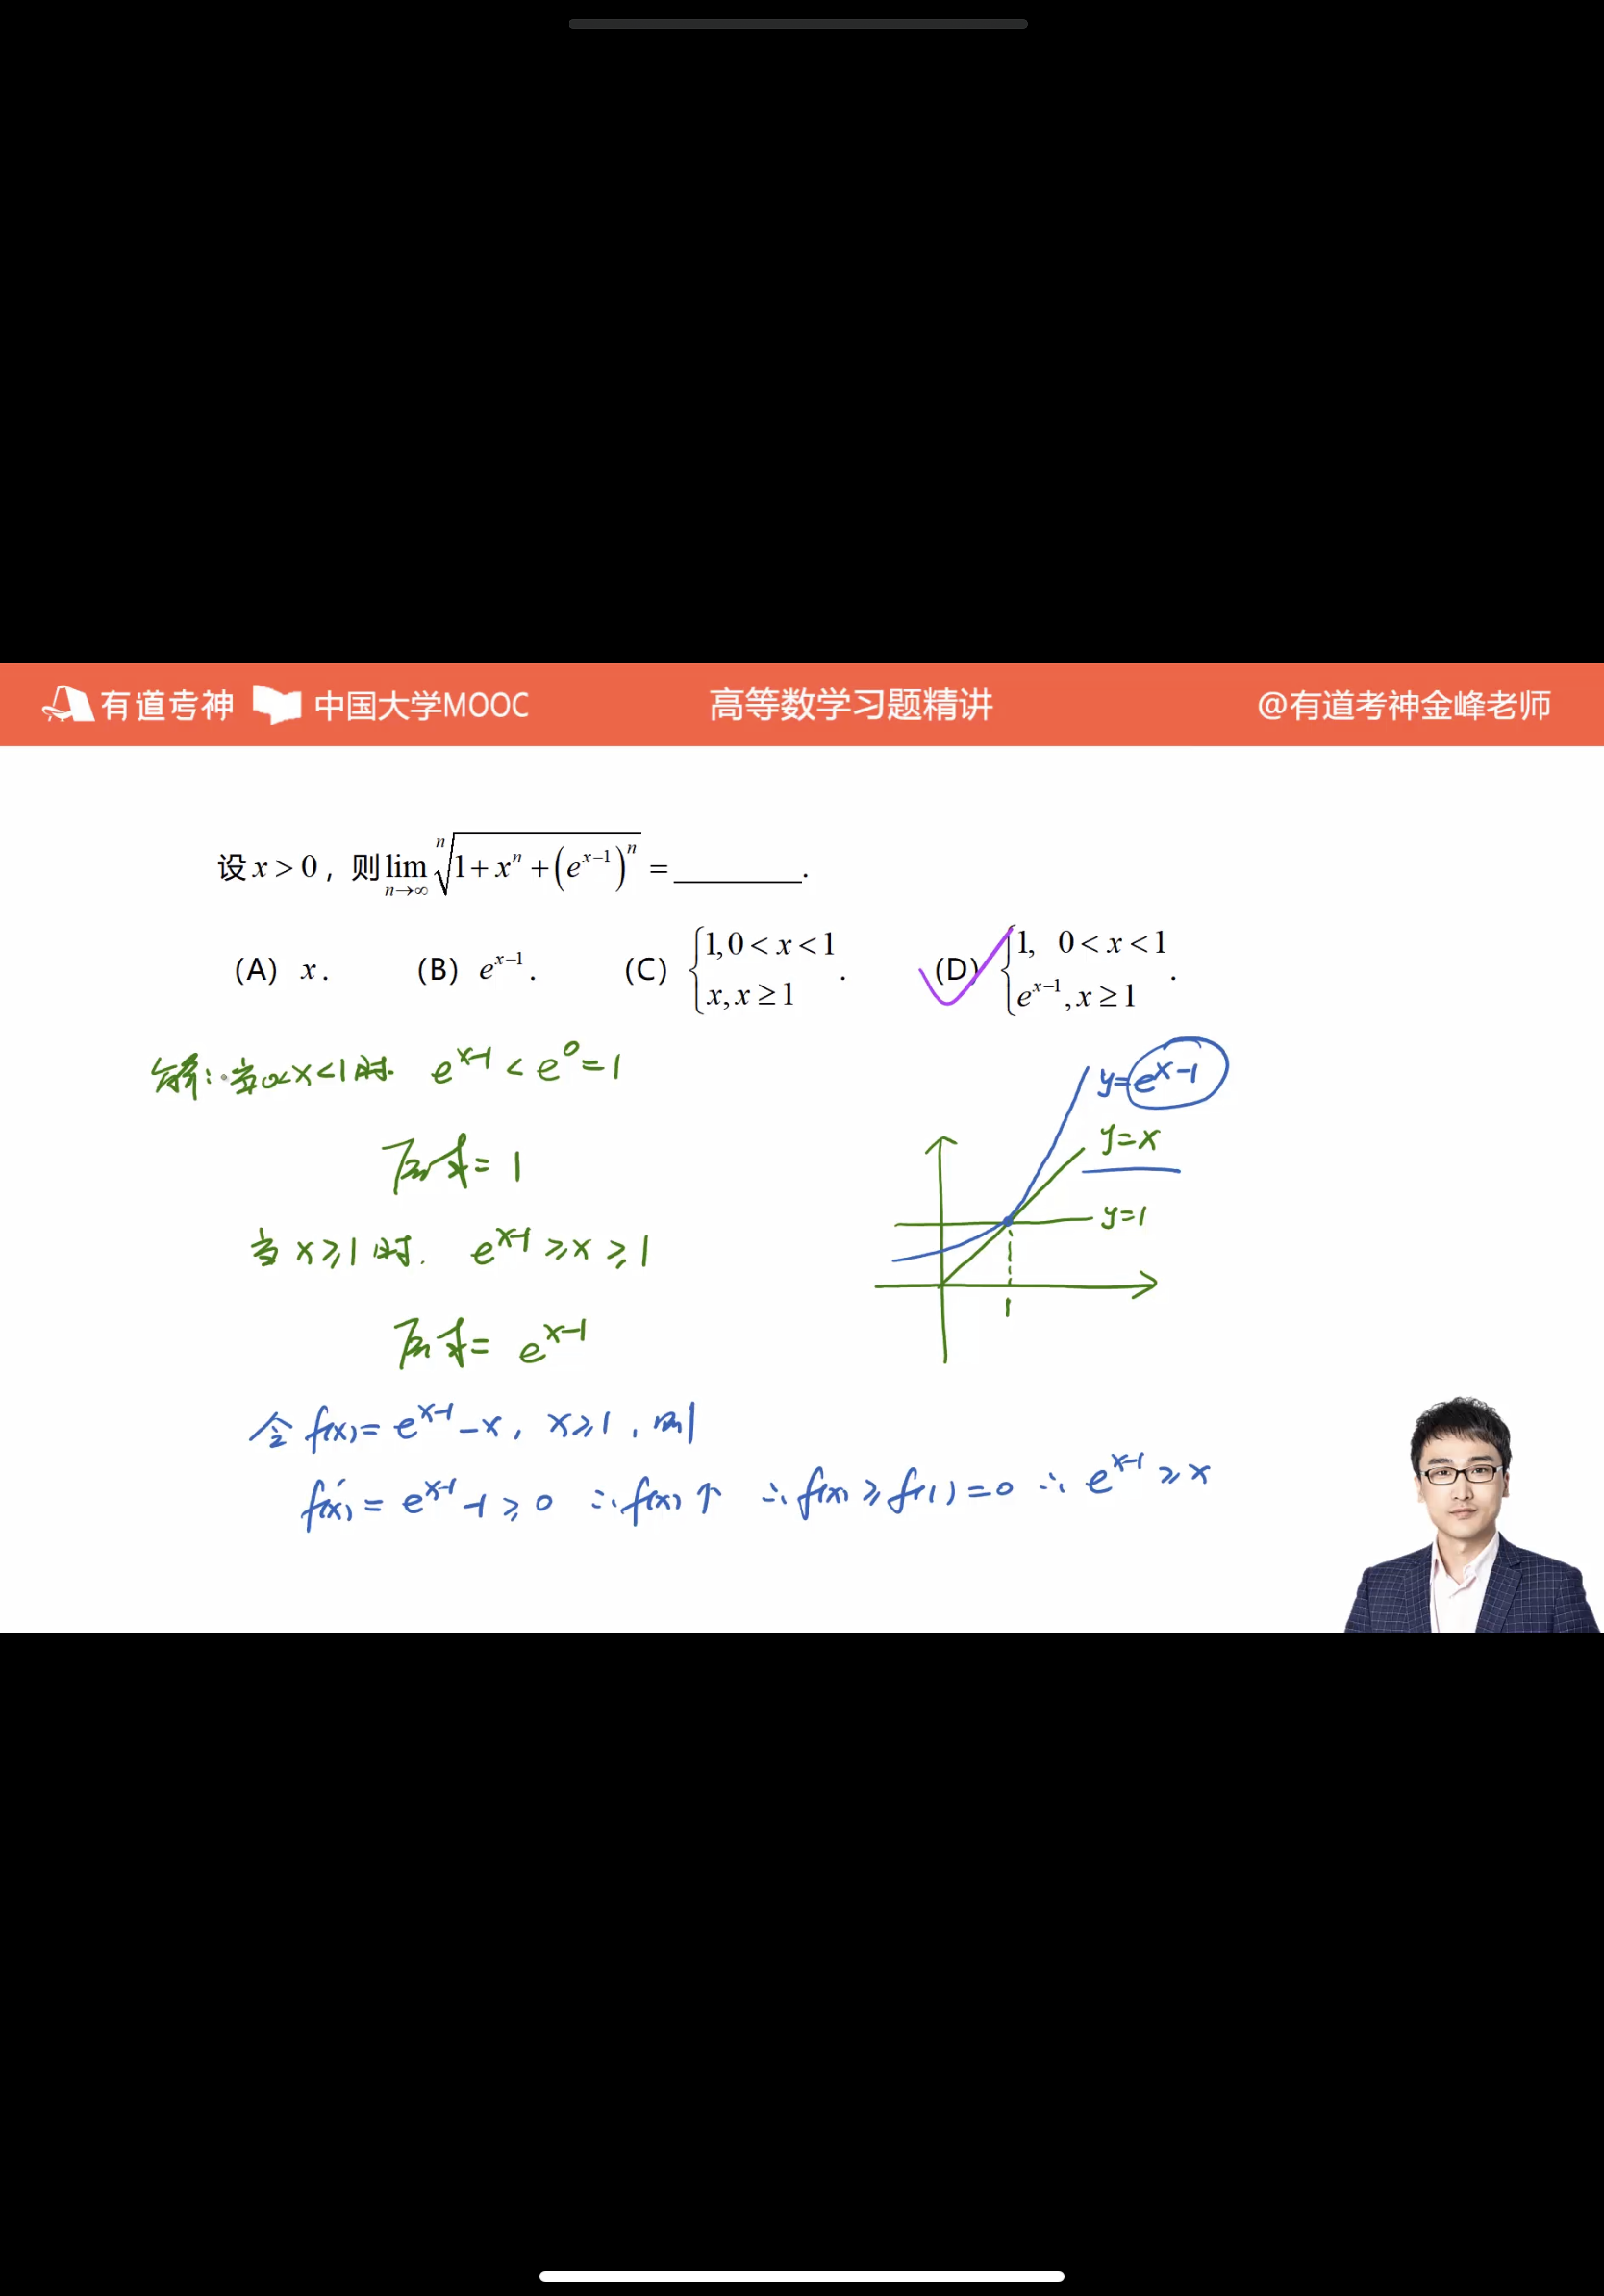 有道考神 中国大学MOOC 高等数学习题精讲 @有道考神金峰老师
设 x > 0，则 lim_{n→∞} \sqrt[n]{1 + x^n + (e^{x-1})^n} = ________.
(A) x. (B) e^{x-1}. (C) {1, 0 < x < 1; x, x ≥ 1. (D) {1, 0 < x < 1; e^{x-1}, x ≥ 1.
解：当0<x<1时. e^{x-1} < e^0 = 1
原式= 1
当 x≥1 时. e^{x-1} ≥ x ≥ 1
原式= e^{x-1}
y=e^{x-1}
y=x
y=1
1
令 f(x)= e^{x-1} -x, x≥1, 则
f'(x) = e^{x-1} -1 ≥ 0 ∴f(x)↑ ∴f(x)≥f(1)=0 ∴ e^{x-1} ≥ x